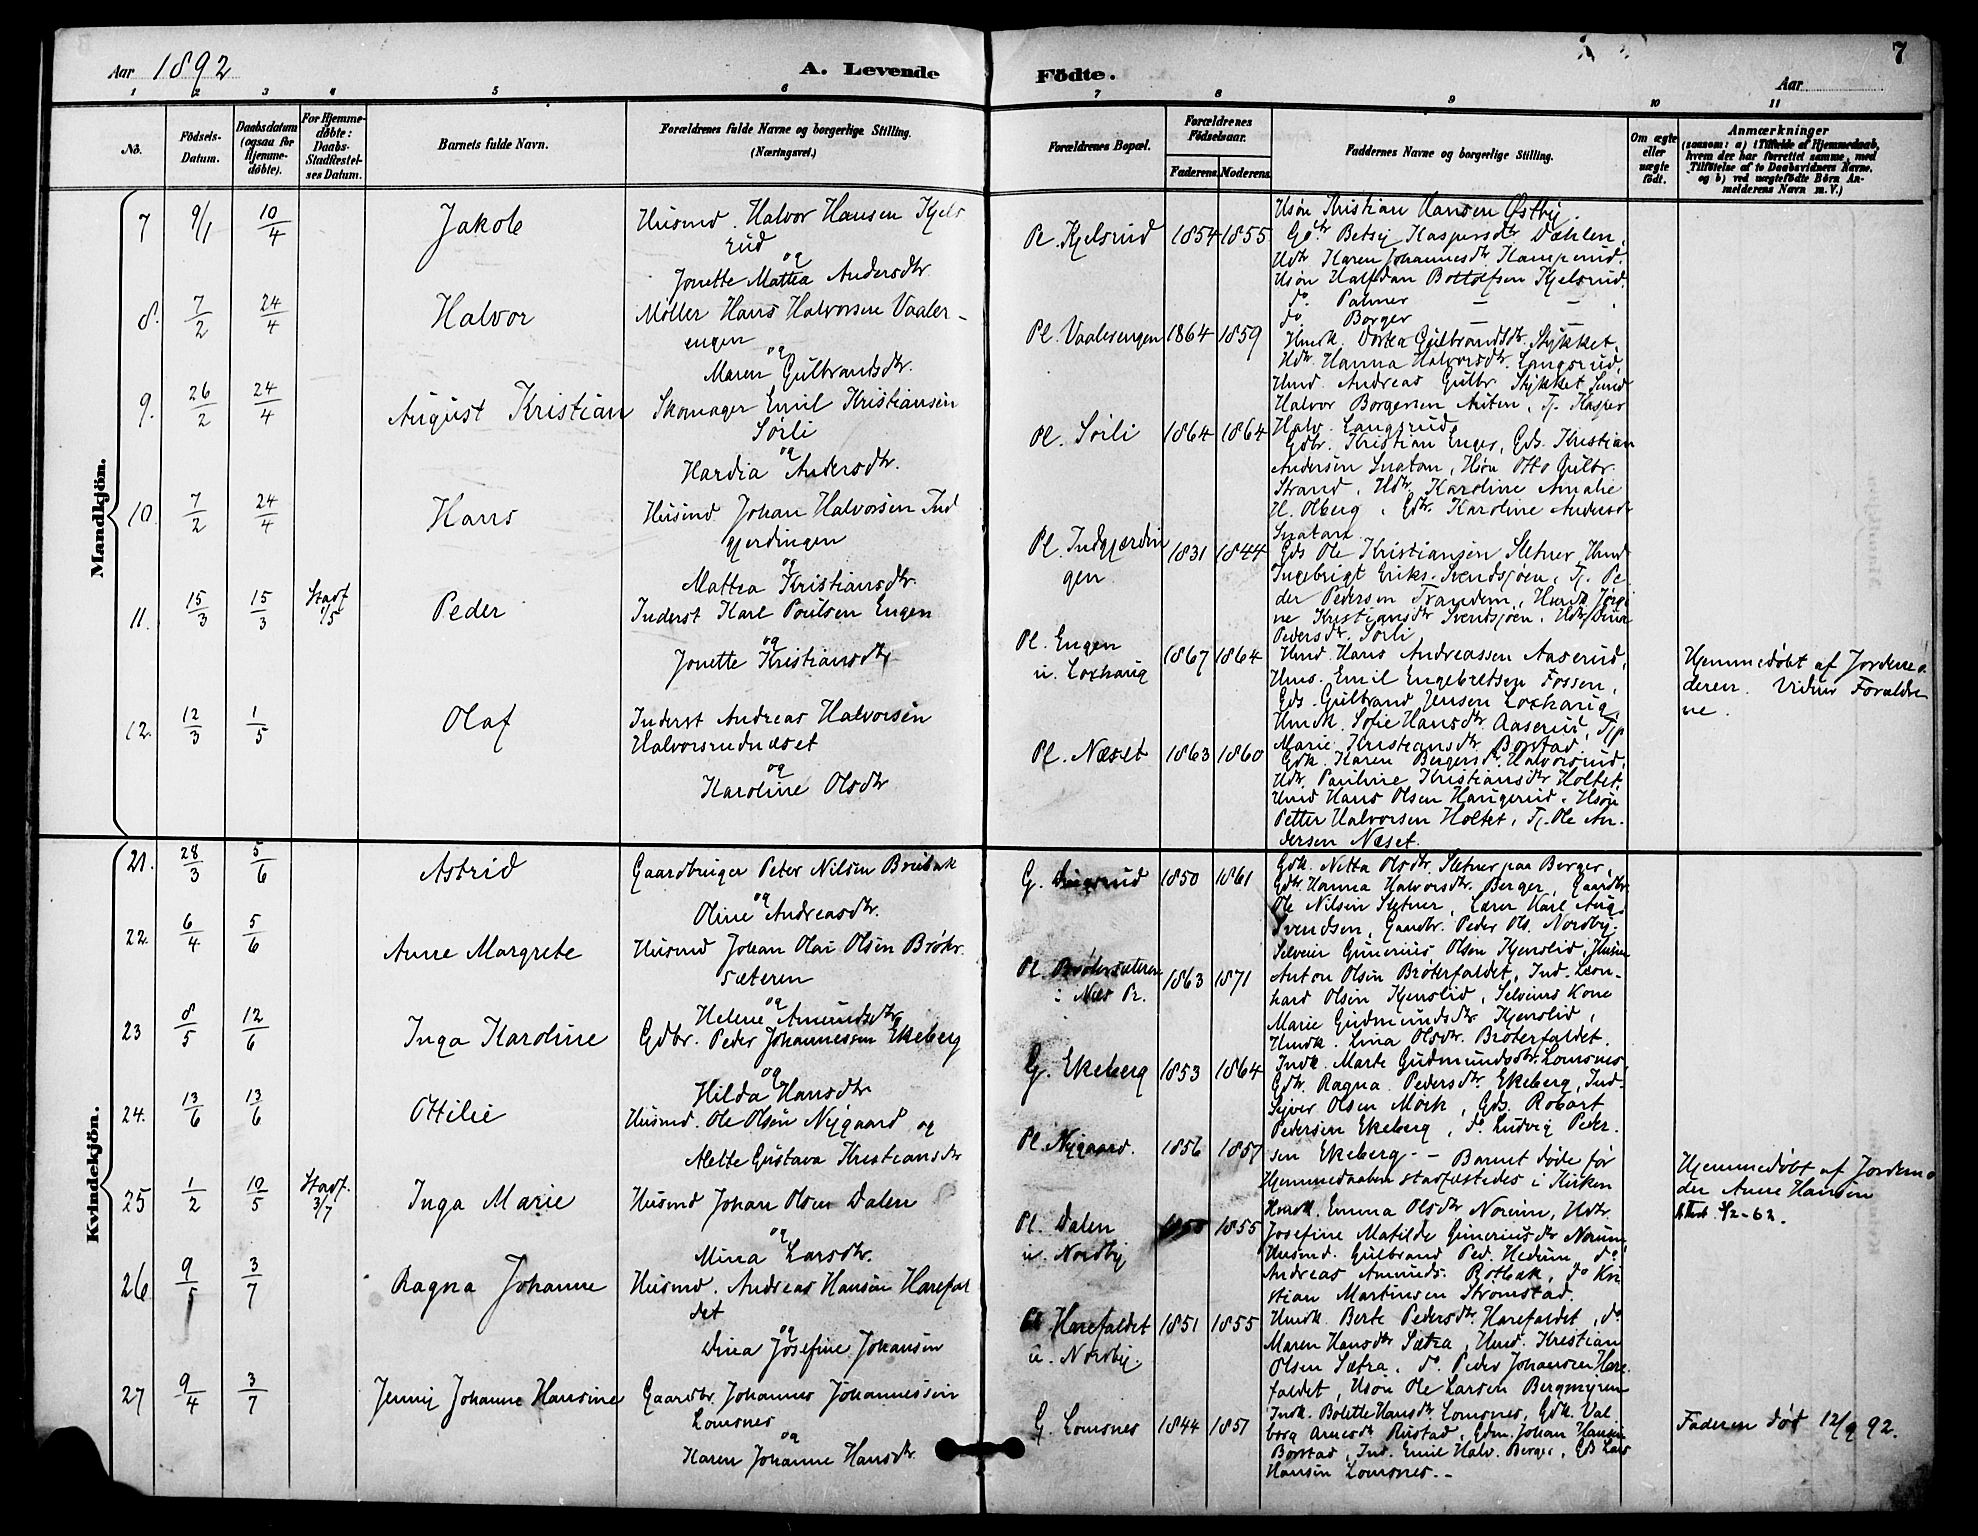 Aar 1892
A. Levende
Födte.
7
Aar
1 2 3 4 5 6 7 8 9 10 11
No.
Födsels-Datum.
Daabsdatum (ogsaa for Hjemme-döbte).
For Hjemme-döbte: Daabs-Stadfæstel-ses Datum.
Barnets fulde Navn.
Forældrenes fulde Navne og borgerlige Stilling. (Næringsvei.)
Forældrenes Bopæl.
Forældrenes Födselsaar.
Faderens. Moderens.
Faddernes Navne og borgerlige Stilling.
Om ægte eller uægte födt.
Anmærkninger
(saasom: a) i Tilfælde af Hjemmedaab,
hvem der har forrettet samme, med
Tilföielse af to Daabsvidners Navne,
og b) ved uægtefödte Börn An-
melderens Navn m. V.)
Mandkjön.
7 9/1 10/4 Jakob
Husmd. Halvor Hansen Kjels
rud
og
Jonette Mattea Andersdtr.
Pl. Kjelsrud 1854 1855
Usön Kristian Hansen Østby.
Gdtr. Betsy Kaspersdtr. Dæhlen,
Hdtr. Karen Johannesdtr. Kamperud.
Usön Halfdan Bottolfsen Kjelsrud.
do. Palmer — —
do Borger — —
8. 7/2 24/4 Halvor
Möller Hans Halvorsen Vaaler-
engen
og
Maren Gulbrandsdtr.
Pl. Vaalerengen 1864 1859
Hmdk. Dorka Gulbrandsdtr. Stykket,
Hdtr. Hanna Halvorsdtr. Langsrud,
Hmd. Andreas Gulbr. Stykket
Halvor Borgersen Tj. Kasper
Halv. Langsrud
9. 26/2 24/4 August Kristian
Skomager Emil Kristiansen
Sörli
og
Hardia Andersdtr.
Pl. Sörli 1864 1864
Gdbr. Kristian Enger, Gds. Kristian
Andersen Snatan, Hsön Otto Gulbr.
Strand, Hdtr. Karoline Amalie
H. Olberg, Gdtr. Karoline Andersdtr
Snatan
10. 7/2 24/4 Hans
Husmd Johan Halvorsen Ind
gjerdingen
og
Mattea Kristiansdtr.
Pl. Indgjærdin
gen 1831 1844
Gds Ole Kristiansen Sletner, Hmd
Ingebrigt Eriks. Svendsjøen, Tj. Pe-
der Pedersen Trandem, Hmdk Jörgi
ne Kristiansdtr Svendsjøen, Hdtr Dina
Pedersdtr. Sörli
11. 15/3 15/3 Stadf 1/5 Peder
Inderst Karl Poulsen Engen
og
Jonette Kristiansdtr
Pl. Engen
u. Loxhaug 1867 1864
Hmd. Hans Andreassen Aaserud,
Hms. Emil Engebretsen Fossen,
Gds. Gulbrand Jensen Loxhaug,
Hmdk. Sofie Hansdtr Aaserud, Tjp.
Marie Kristiansdtr Borstad
Hjemmedøbt af Jordemo
deren. Vidner Foraldre
ne.
12. 12/3 1/5 Olaf
Inderst Andreas Halvorsen
Halvorsrudnæset
og
Karoline Olsdtr
Pl. Næset 1863 1860
Gdk. Karen Bergersdtr. Halvorsrud,
Hdtr. Pauline Kristiansdtr Holtet,
Hmd Hans Olsen Haugerud, Hsön
Petter Halvorsen Holtet, Tj. Ole An-
dersen Næset.
Kvindekjön.
21. 28/3 5/6 Astrid
Gaardbruger Peter Nilsen
og
Oline Andreasdtr.
G. 1850 1861
Gdk. Netta Olsdtr. Sletner paa Berger,
Gdtr. Hanna Halvorsdtr. Berger, Gaardbr.
Ole Nilsen Sletner, Lærer Karl Aug.
Svendsen, Gaardbr. Peder Ols. Nordby.
22. 6/4 5/6 Anne Margrete
Husmd Johan Olai Olsen Bröter
sæteren
og
Helene Amundsdtr
Pl. Brötersæteren
i Næs P. 1863 1871
Selveier Gunerius Olsen Kjenslid, Husm
Anton Olsen Bröterfaldet, Ind. Leon-
hard Olsen Kjenslid, Selveiers Kone
Marie Gudmundsdtr Kjenslid,
Hmdk. Lina Olsdtr. Bröterfaldet.
23 8/5 12/6 Inga Karoline
Gdbr. Peder Johannessen Ekeberg
og
Hilda Hansdtr
G. Ekeberg 1853 1864
Indk. Marte Gudmundsdtr. Lomsnes
Gdtr. Ragna Pedersdtr. Ekeberg, Ind.
Syver Olsen Mörk, Gds. Robart
Pedersen Ekeberg, do. Ludvig Peder-
sen Ekeberg -
24. 13/6 13/6 Ottilie
Husmd. Ole Olsen Nygaard og
Alette Gustava Kristiansdtr
Pl. Nygaard. 1856 1857
— Barnet døde før
Hjemmedaaben stadfæstedes i Kirken
25 1/2 10/5 Stadf. 3/7 Inga Marie
Husmd Johan Olsen Dalen
og
Mina Larsdtr.
Pl. Dalen
u. Nordby 1855
Hmdk. Emma Olsdtr Noreim, Hdtr
Josefine Matilde Guneriusdtr Norum
Husmd. Gulbrand Ped. Hedum, do.
Andreas Amunds. Rotbæk, do Kri
stian Martinsen Strömstad.
Hjemmedøbt af Jordemo
der Anne Hansen
26 9/5 3/7 Ragna Johanne
Husmd. Andreas Hansen Harefal
det
og
Dina Josefine Johansen
Pl Harefaldet
u. Nordby. 1851 1855
Hmdk. Berte Pedersdtr. Harefaldet, do
Maren Hansdtr Sætra, Hmd. Kristian
Olsen Sætra, do. Peder Johansen Hare-
faldet, Usön Ole Larsen Bergmyren
27 9/4 3/7 Jenny Johanne Hansine
Gaardbr. Johannes Johannessen
Lomsnes
og
Karen Johanne Hansdtr.
G. Lomsnes 1844 1851
Indk. Bolette Hansdtr. Lomsnes, Gdk. Val
borg Arnesdtr Rustad, Gdm. Johan Hansen
Borstad, Ind. Emil Halv. Berger, Gds Lars
Hansen Lomsnes. —
Faderen död 12/9 92.